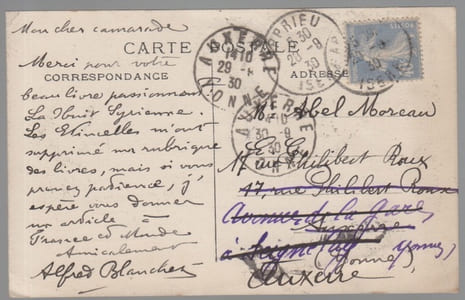 Mon cher camarade
CARTE POSTALE
Merci pour votre
CORRESPONDANCE
ADRESSE
beau livre passionnant
La Nuit Syrienne.
Les Etincelles m'ont
supprimé ma rubrique
des livres, mais si vous
prenez patience, j'
espère vous donner
un article à
France et Monde
Amicalement
Alfred Blanchet
AUXERRE
14 10
29 - 9
30
YONNE
30
28 - 9
30
ISERE
AUXERRE
30 - 9
30
YONNE
M. Abel Moreau
17 rue Philibert Roux
17, rue Philibert Roux
Avenue de la Gare,
à
Yonne
(Yonne)
Auxerre